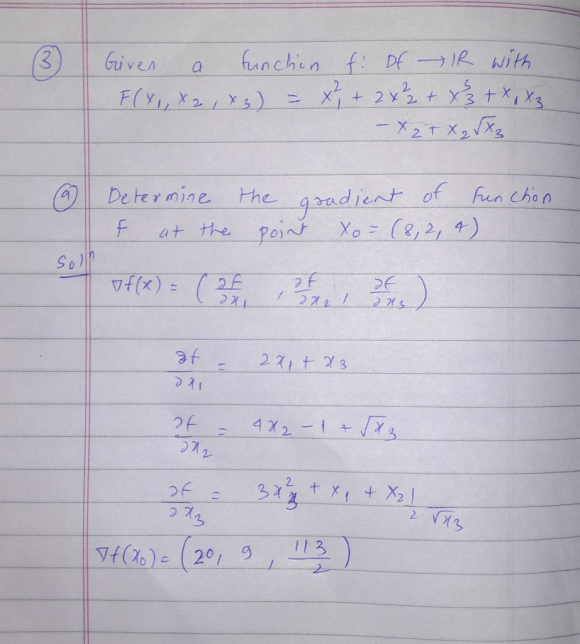 ③ Given a function f: Df → IR with
F(x₁, x₂, x₃) = x₁² + 2x₂² + x₃³ + x₁x₃
- x₂ + x₂√x₃
ⓐ Determine the gradient of function
F at the point x₀ = (8, 2, 4)
Solⁿ
∇f(x) = (∂f/∂x₁, ∂f/∂x₂, ∂f/∂x₃)
∂f/∂x₁ = 2x₁ + x₃
∂f/∂x₂ = 4x₂ - 1 + √x₃
∂f/∂x₃ = 3x₃² + x₁ + x₂ 1/2√x₃
∇f(x₀) = (20, 9, 113/2)